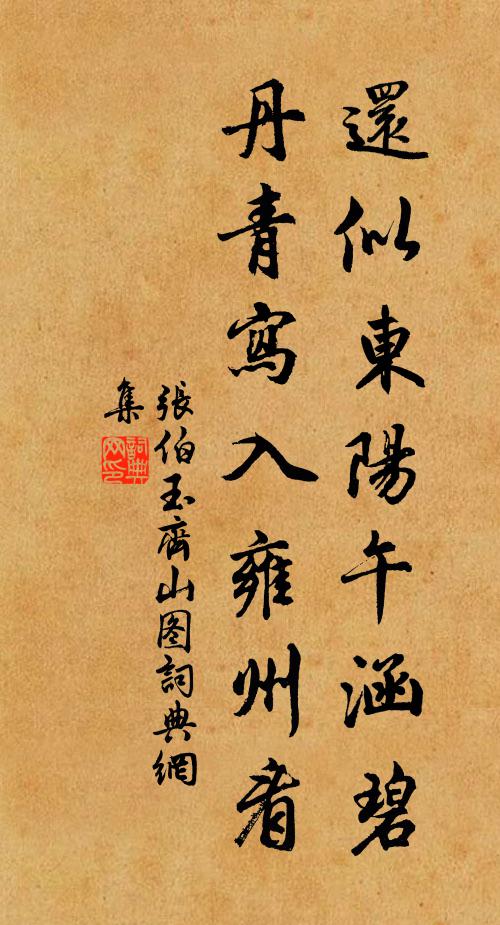 還似東陽午涵碧
丹青寫入雍州看
張伯玉齊山图詞典網
集
詞典网印